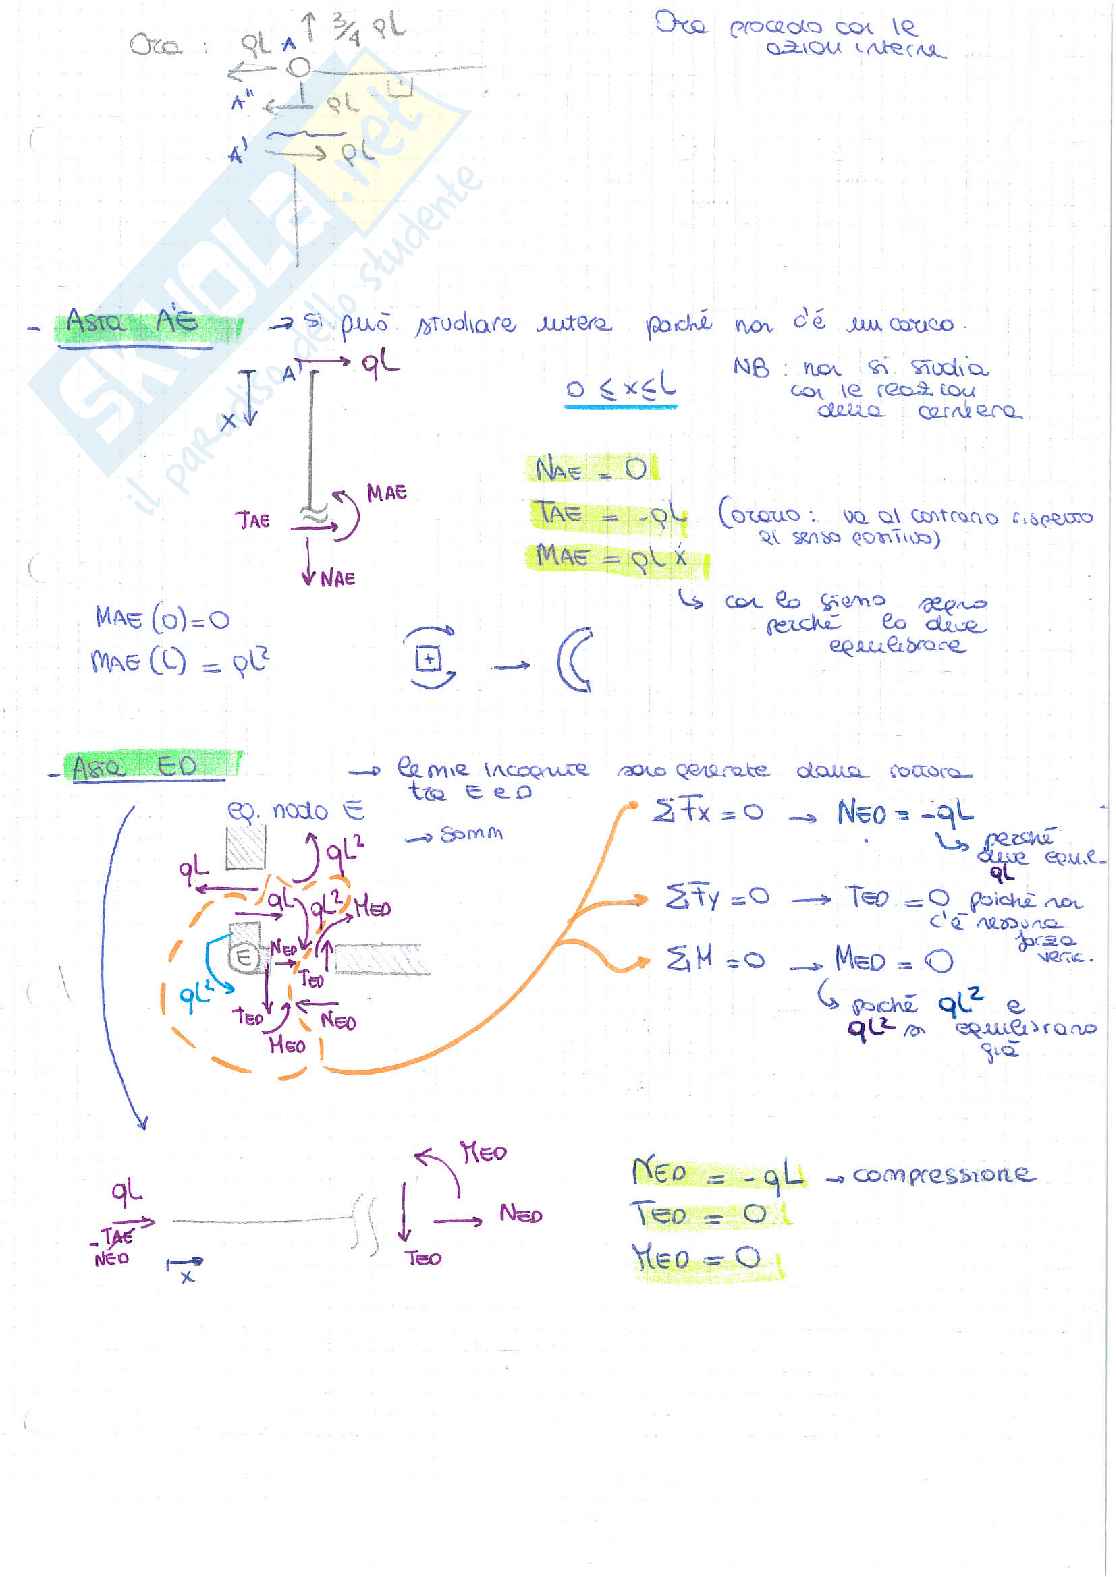 Ora : qL A ↑ 3/4 qL
A" qL
A' qL
Ora procedo con le
azioni interne
- Asta A'E → si può studiare intera poiché non c'è un carico.
A' qL
x
0 ≤ x ≤ L
NB : non si studia
con le reazioni
della cerniera
MAE
TAE
NAE
NAE = 0
TAE = -qL (orario: va al contrario rispetto
al senso positivo)
MAE = qL x
↳ con lo stesso segno
perché lo deve
equilibrare
MAE (0) = 0
MAE (L) = qL²
+
- Asta ED → le mie incognite sono generate dalla rottura
tra E e D
eq. nodo E
→ somm
qL qL²
qL qL² MED
E NED TED
qL²
TED NED
MED
ΣFx = 0 → NED = -qL
↳ perché
deve equil.
qL
ΣFy = 0 → TED = 0 poiché non
c'è nessuna
forza
vert.
ΣM = 0 → MED = 0
↳ poiché qL² e
qL² si equilibrano
già
MED
qL
NED
-TAE
NED
TED
x
NED = -qL → compressione
TED = 0
MED = 0
SKUOLA.net
il paradiso dello studente